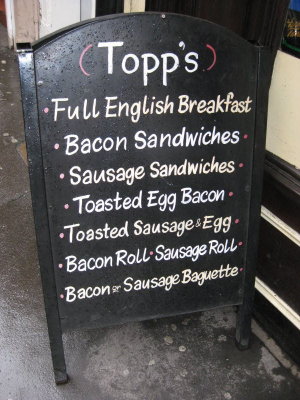 (Topp's)
·Full English Breakfast
·Bacon Sandwiches·
·Sausage Sandwiches·
·Toasted Egg Bacon·
·Toasted Sausage & Egg·
·Bacon Roll·Sausage Roll·
·Bacon or Sausage Baguette·